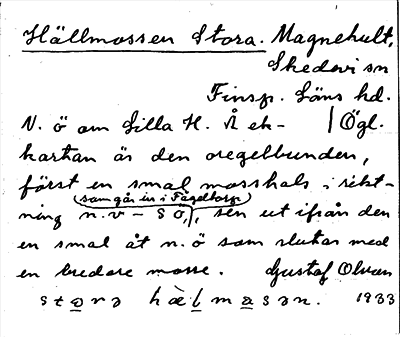 Hällmossen Stora. Magnehult,
Skedevi sn
Finsp. Läns hd.
N. ö om Lilla H. Å ek- / Ögl.
kartan är den oregelbunden,
först en smal mosshals i rikt-
(som går in i Fågeltorp)
ning n.v - s ö, sen ut ifrån den
en smal åt n. ö som slutar med
en bredare mosse. Gustaf Olson
stọrə hàlmasən. 1933